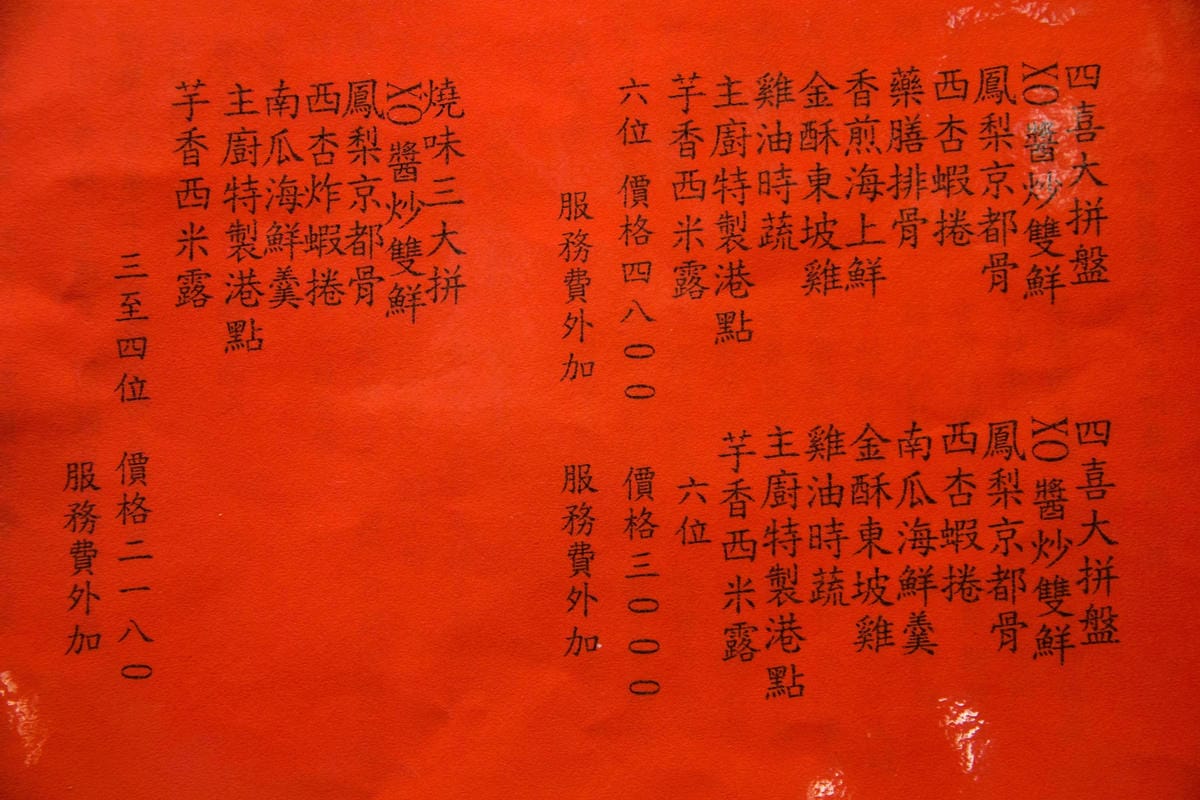 四喜大拼盤
XO醬炒雙鮮
鳳梨京都骨
西杏蝦捲
藥膳排骨
香煎海上鮮
金酥東坡雞
雞油時蔬
主廚特製港點
芋香西米露
六位 價格四八00
服務費外加
四喜大拼盤
XO醬炒雙鮮
鳳梨京都骨
西杏蝦捲
南瓜海鮮羹
金酥東坡雞
雞油時蔬
主廚特製港點
芋香西米露
六位
價格三000
服務費外加
燒味三大拼
XO醬炒雙鮮
鳳梨京都骨
西杏炸蝦捲
南瓜海鮮羹
主廚特製港點
芋香西米露
三至四位 價格二一八0
服務費外加